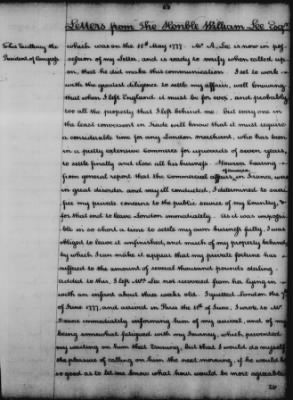 Letters from The Honble William Lee Esqr
To his Excellency the
President of Congress
which was on the 18th May 1777 Mr A. Lee is now in pos-
session of my Letter, and is ready to verify when called up-
on, that he did make this communication. I set to work
with the greatest diligence to settle my affairs, well knowing
that when I left England it must be for ever, and probably
too all the property that I left behind me. But every one in
the least conversant in Trade will know that it must require
a considerable time for any London merchant, who has been
in a pretty extensive Commerce for upwards of seven years,
to settle finally and close all his business. However hearing
from general report that the Commercial affairs of Congress in France, were
in great disorder and very ill conducted, I determined to sacri-
fice my private concerns to the public service of my Country, &
for that end to leave London immediately. As it was impossi-
ble in so short a time to settle my own business fully, I was
obliged to leave it unfinished, and much of my property behind
by which I can make it appear that my private fortune has
suffered to the amount of several thousand pounds sterling.
added to this, I left Mrs Lee not recovered from her lying in
with an infant about three weeks old. I quitted London the 7th
of June 1777, and arrived in Paris the 11th of June. I wrote to Mr
Deane immediately informing him of my arrival, and of my
being somewhat fatigued with my Journey, which prevented
my waiting on him that Evening, but that I would do myself
the pleasure of calling on him the next morning, if he would be
so good as to let me know what hour would be most agreeable